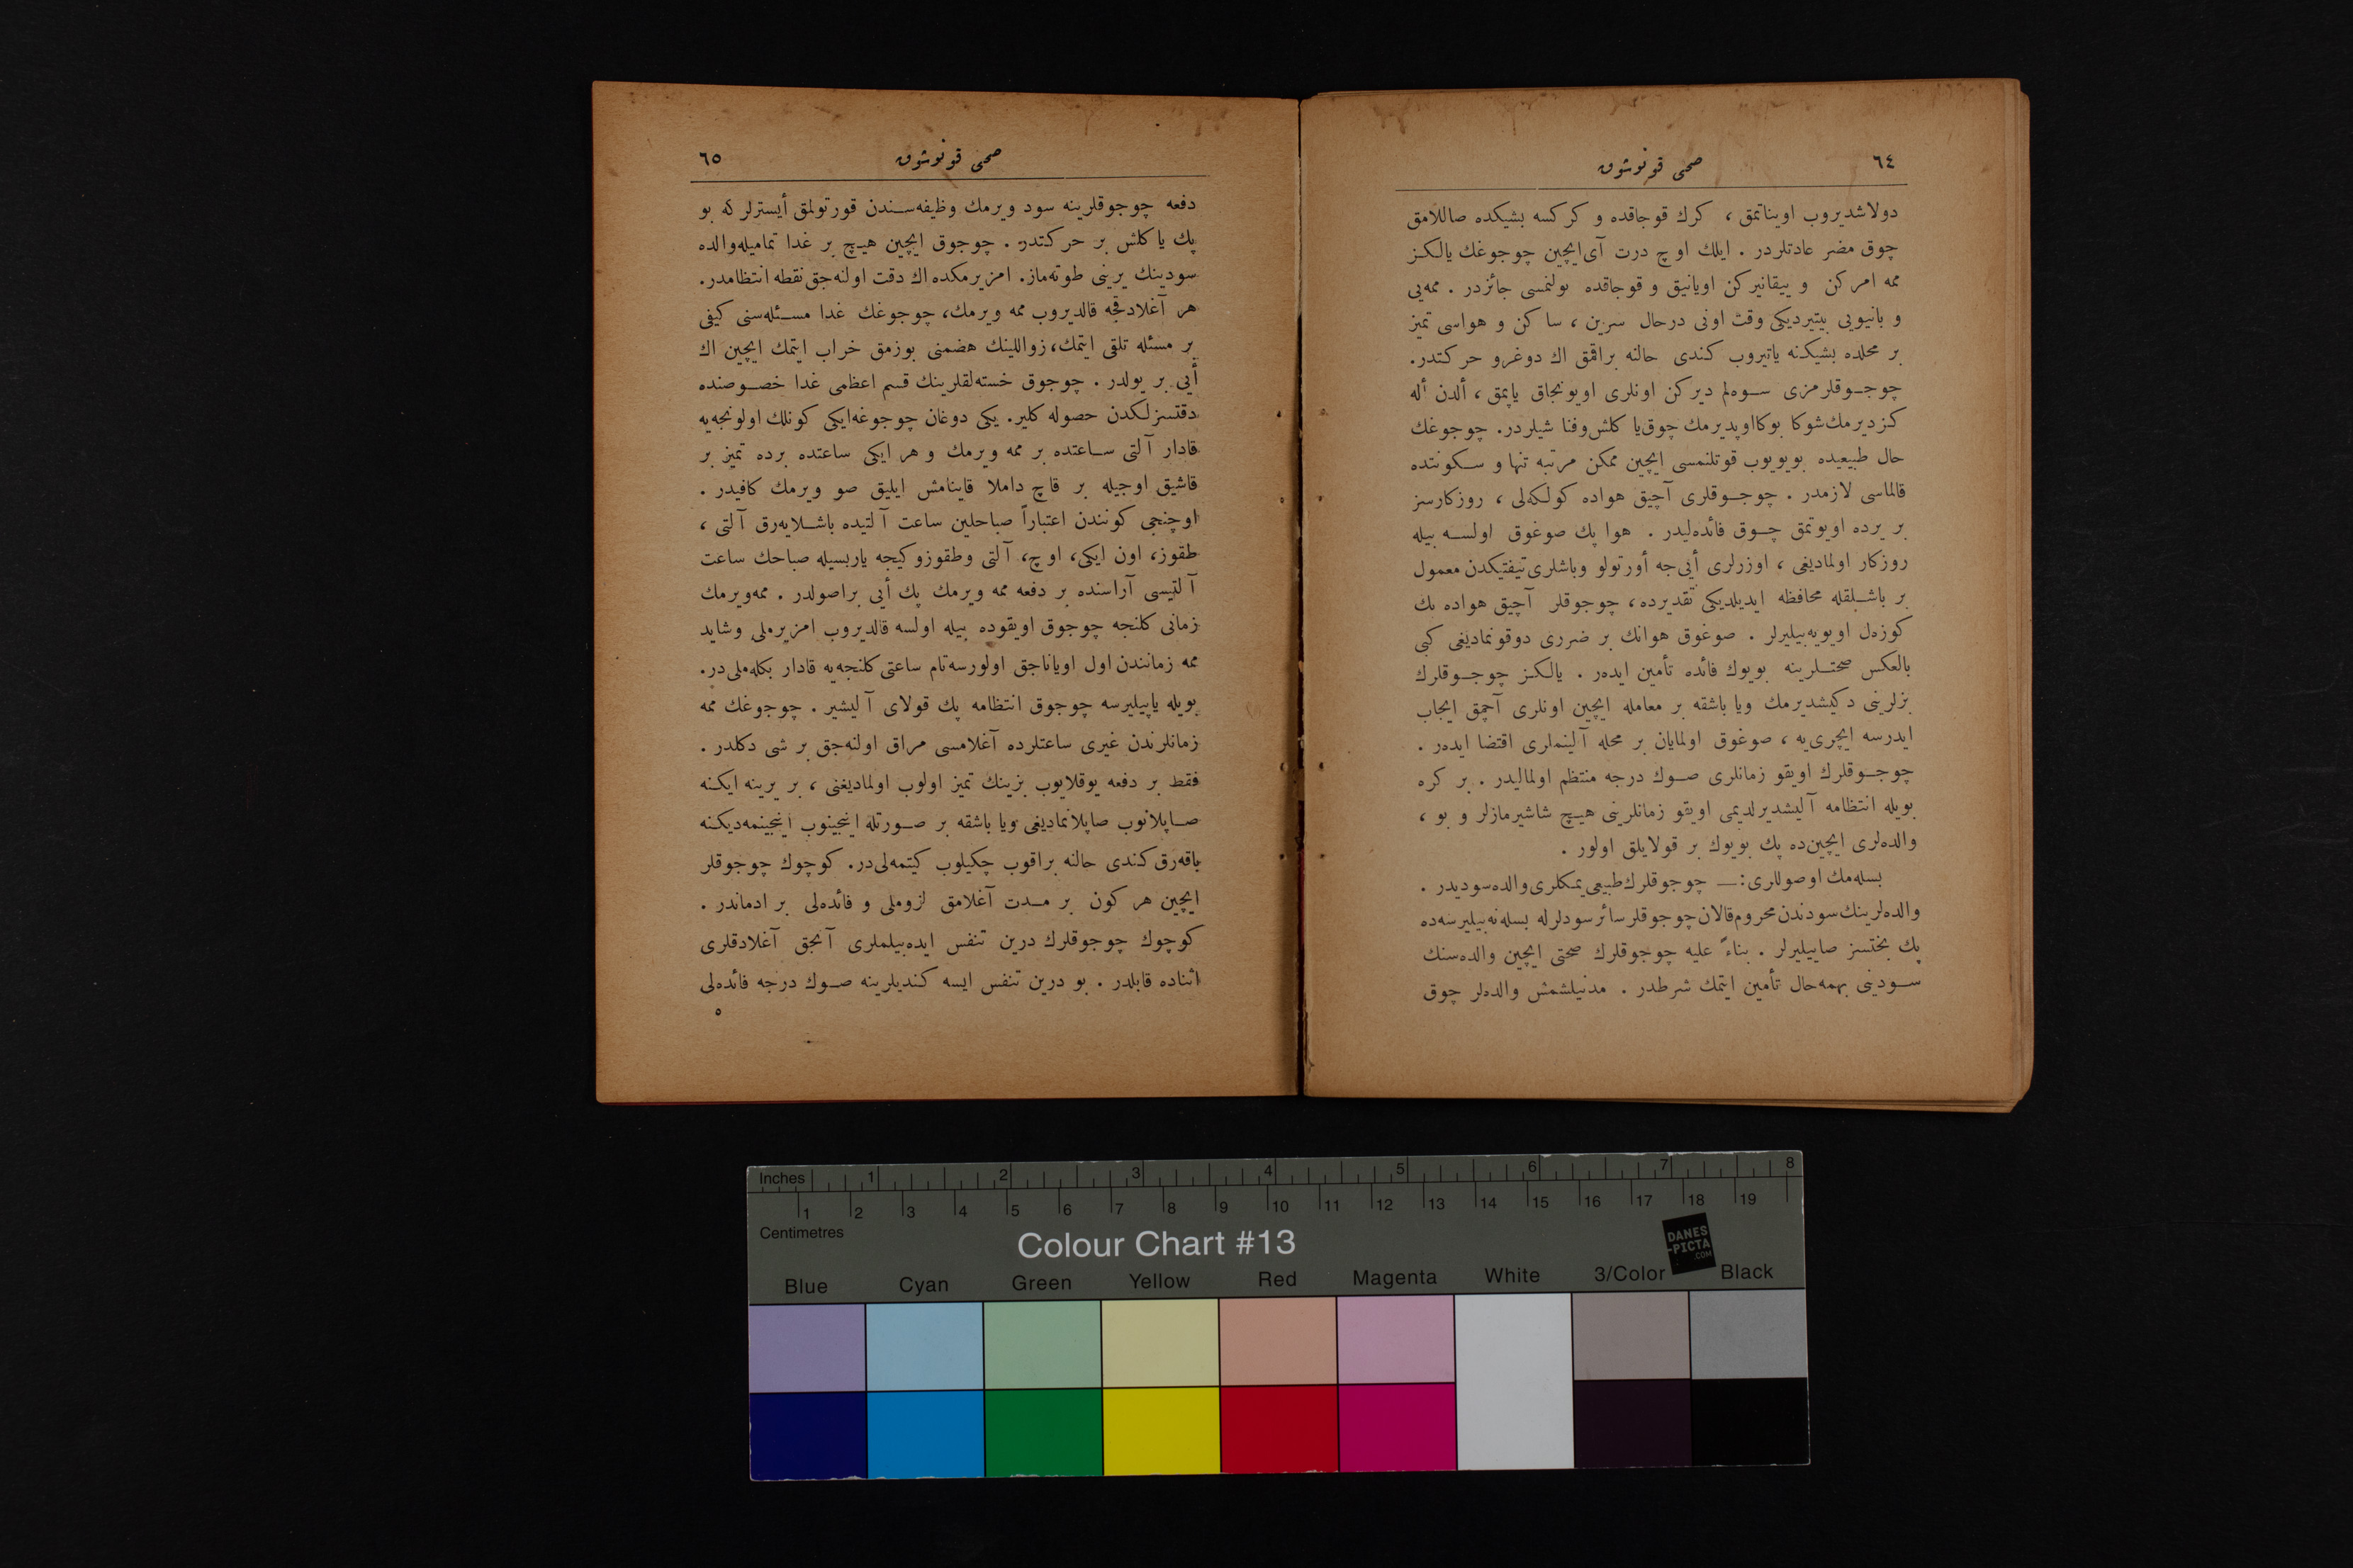 ٦٤
صحی قونوشوق
دولاشدیروب اویناتمق ، كرك قوجاقده و كركسه بشیكده صاللامق
چوق مضر عادتلردر . ایلك اوچ درت آی‌ایچین چوجوغك یالكز
ممه امركن و ییقانیركن اویانیق و قوجاقده بولنمسی جائزدر . ممه‌یی
و بانیویی بیتیردیكی وقت اونی درحال سرین ، ساكن و هواسی تمیز
بر محلده بشیكنه یاتیروب كندی حالنه براقمق اك دوغرو حركتدر.
چوجـوقلرمزی سـوه‌لم دیركن اونلری اویونجاق یاپمق ، ألدن أله
كزدیرمك‌شوكا بوكااوپدیرمك چوق‌یاكلش‌وفنا شیلردر. چوجوغك
حال طبیعیده بویویوب قوتلنمسی ایچین ممكن مرتبه تنها و سكونتده
قالماسی لازمدر . چوجـوقلری آچیق هواده كولكه‌لی ، روزكارسز
بر یرده اویوتمق چـوق فائده‌لیدر . هوا پك صوغوق اولسـه بیله
روزكار اولمادیغی ، اوزرلری أیی‌جه أورتولو وباشلری‌تیفتیكدن معمول
بر باشـلقله محافظه ایدیلدیكی تقدیرده، چوجوقلر آچیق هواده پك
كوزه‌ل اویویه‌بیلیرلر . صوغوق هوانك بر ضرری دوقونمادیغی كبی
بالعكس صحتـلرینه بویوك فائده تأمین ایده‌ر . یالكز چوجـوقلرك
بزلرینی دكیشدیرمك ویا باشقه بر معامله ایچین اونلری آچمق ایجاب
ایدرسه ایچری‌یه ، صوغوق اولمایان بر محله آلینملری اقتضا ایده‌ر .
چوجـوقلرك اویقو زمانلری صـوك درجه منتظم اولمالیدر . بر كره
بویله انتظامه آلیشدیرلدیمی اویقو زمانلرینی هیـچ شاشیرمازلر و بو ،
والده‌لری ایچین‌ده پك بویوك بر قولایلق اولور .
بسله‌مك اوصوللری: — چوجوقلرك‌طبیعی‌یمكلری‌والده‌سودیدر .
والده‌لرینك‌سودندن‌محروم‌قالان‌چوجوقلرسائرسودلرله بسله‌نه‌بیلیرسه‌ده
پك بختسز صاییلیرلر . بناءً علیه چوجوقلرك صحتی ایچین والده‌سنك
سـودینی بهمه‌حال تأمین ایتمك شرطدر . مدنیلشمش والده‌لر چوق
صحی قونوشوق
٦٥
دفعه چوجوقلرینه سود ویرمك وظیفه‌سـندن قورتولمق أیسترلر كه بو
پك یاكلش بر حركتدر . چوجوق ایچین هیـچ بر غدا تمامیله‌والده
سودینك یرینی طوته‌ماز. امزیرمكده اك دقت اولنه‌جق نقطه انتظامدر.
هر آغلادقجه قالدیروب ممه ویرمك، چوجوغك غدا مسـئله‌سنی كیفی
بر مسئله تلقی ایتمك، زواللینك هضمنی بوزمق خراب ایتمك ایچین اك
أیی بر یولدر . چوجوق خسته‌لقلرینك قسم اعظمی غدا خصـوصنده
دقتسزلكدن حصوله كلیر. یكی دوغان چوجوغه‌ایكی كونلك اولونجه‌یه
قادار آلتی سـاعتده بر ممه ویرمك و هر ایكی ساعتده برده تمیز بر
قاشیق اوجیله بر قاچ داملا قاینامش ایلیق صو ویرمك كافیدر .
اوچنجی كونندن اعتباراً صباحلین ساعت آلتیده باشـلایه‌رق آلتی ،
طقوز، اون ایكی، اوچ، آلتی وطقوزوكیجه یاریسیله صباحك ساعت
آلتیسی آراسنده بر دفعه ممه ویرمك پك أیی براصولدر . ممه‌ویرمك
زمانی كلنجه چوجوق اویقوده بیله اولسه قالدیروب امزیرملی وشاید
ممه زمانندن اول اویاناجق اولورسه‌تام ساعتی‌كلنجه‌یه قادار بكله‌ملی‌در.
بویله یاپیلیرسه چوجوق انتظامه پك قولای آلیشیر . چوجوغك ممه
زمانلرندن غیری ساعتلرده آغلامسی مراق اولنه‌جق بر شی دكلدر .
فقط بر دفعه یوقلایوب بزینك تمیز اولوب اولمادیغنی ، بر یرینه ایكنه
صـاپلانوب صاپلانمادیغی ویا باشقه بر صـورتله اینجینوب اینجینمه‌دیكنه
باقه‌رق كندی حالنه براقوب چكیلوب كیتمه‌لی‌در. كوچوك چوجوقلر
ایچین هر كون بر مـدت آغلامق لزوملی و فائده‌لی بر ادماندر .
كوچوك چوجوقلرك درین تنفس ایده‌بیلملری آنجق آغلادقلری
اثناده قابلدر . بو درین تنفس ایسه كندیلرینه صـوك درجه فائده‌لی
٥
Inches 1 2 3 4 5 6 7 8
1 2 3 4 5 6 7 8 9 10 11 12 13 14 15 16 17 18 19
Centimetres
Colour Chart #13
DANES
-PICTA
.COM
Blue Cyan Green Yellow Red Magenta White 3/Color Black